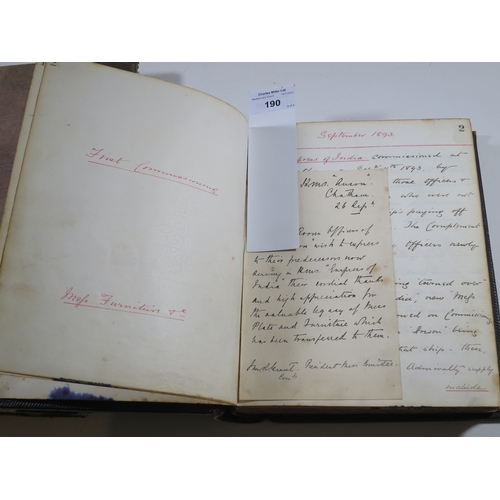 First Commissioning
Mess Furniture &c
Charles Miller Ltd
190
2
September 1893
Empress of India Commissioned at
1893, by
those officers &
who were not
ship's paying off
The Complement
Officers newly
being turned over
India", new Mess
on Commissioning
"Anson" being
that ship. these
Admiralty supply
include
H.M.S. "Anson".
Chatham.
26 Sept.
Room Officers of
wish to express
to their predecessors now
serving in H.M.S. "Empress of
India" their cordial thanks
and high appreciation for
the valuable legacy of Mess
Plate and Furniture which
has been transferred to them.
President Mess Committee